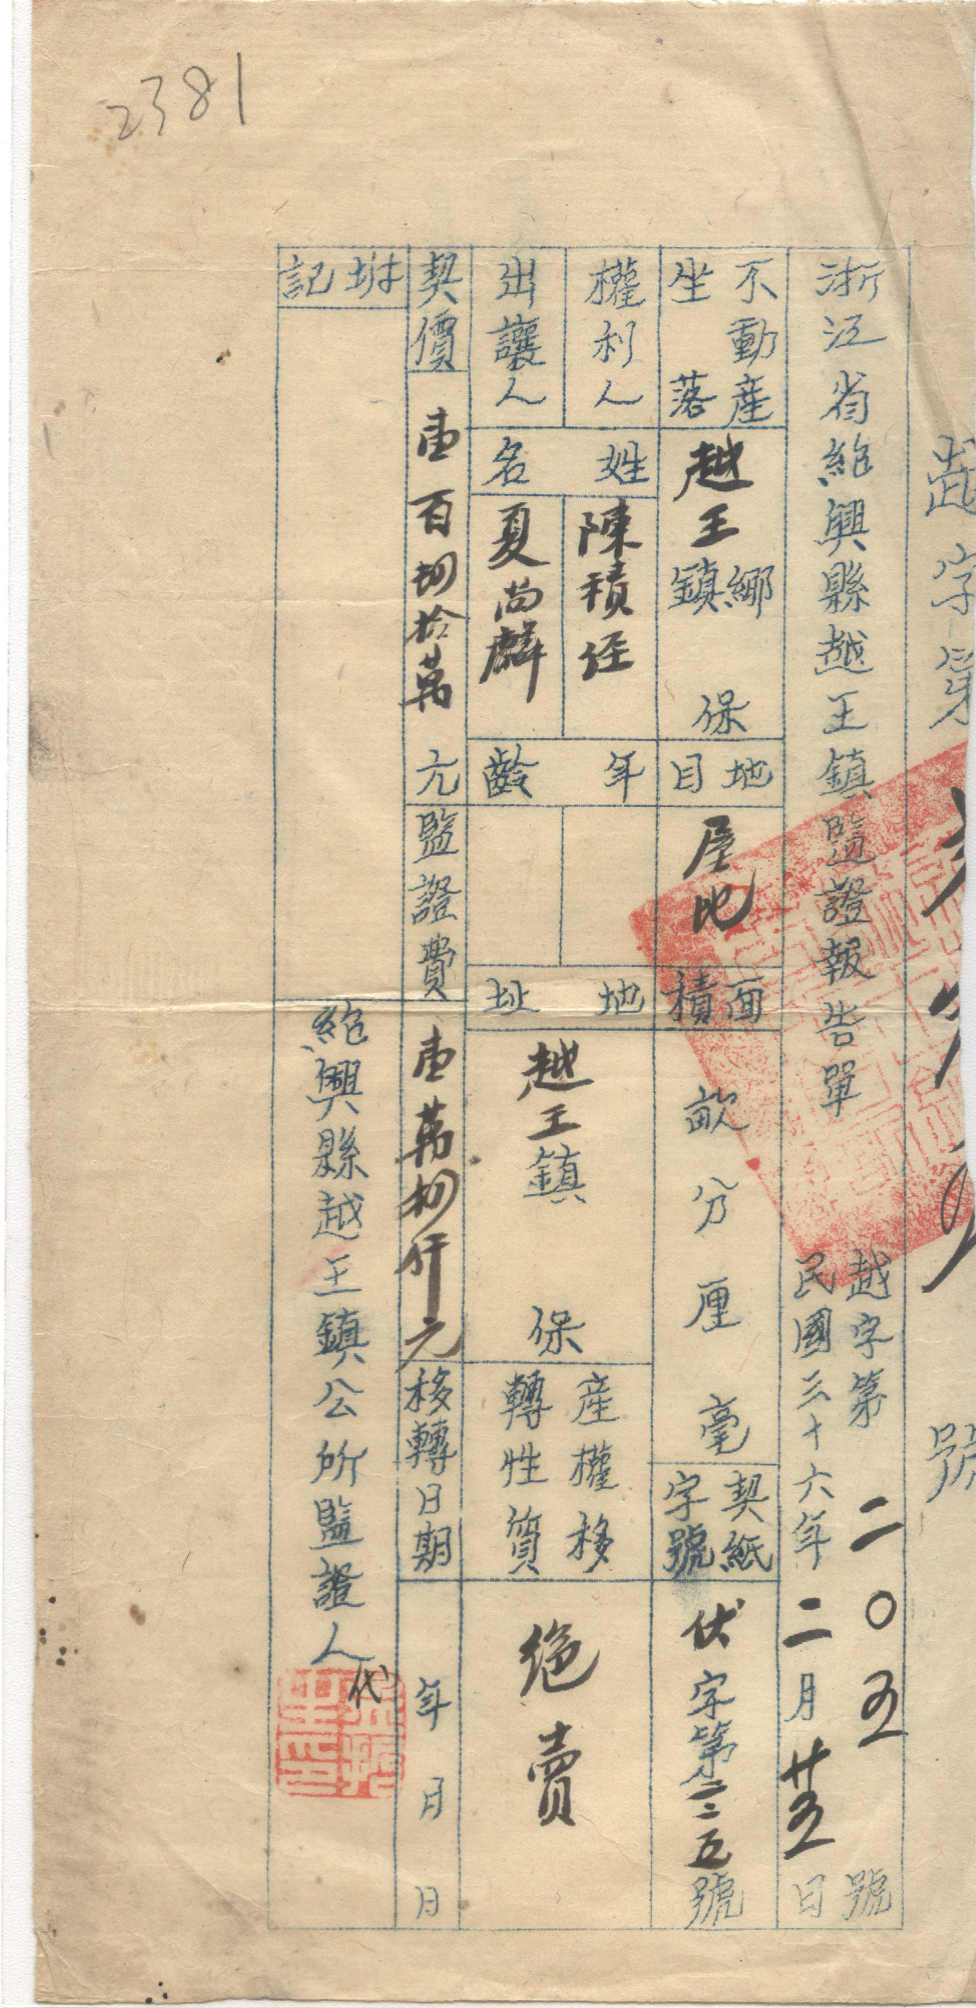 2381
越字第
號
浙江省紹興縣越王鎮監證報告單
越字第二〇五號
民國三十六年二月廿五日
不動產坐落
越王鄉鎮
保
地目
屋地
面積
畝分厘毫
契紙字號
伏字第三二五號
權利人
出讓人
姓名
陳積經
夏尚麟
年齡
地址
越王鎮
保
產權移轉性質
絕賣
契價
壹百捌拾萬元
監證費
壹萬捌仟元
移轉日期
年月日
坿記
紹興縣越王鎮公所監證人
代